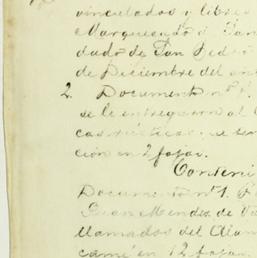 vinculados y libre
Marquesado d San
dado de San Pedro
de Diciembre del an
2. Documento nº
se le entregaron al
cas rústicas, se
ción en 2 fojas.
Conteni
Documento nº 1.
Juan Mendez de
llamados del Alam
came en 12 fojas.